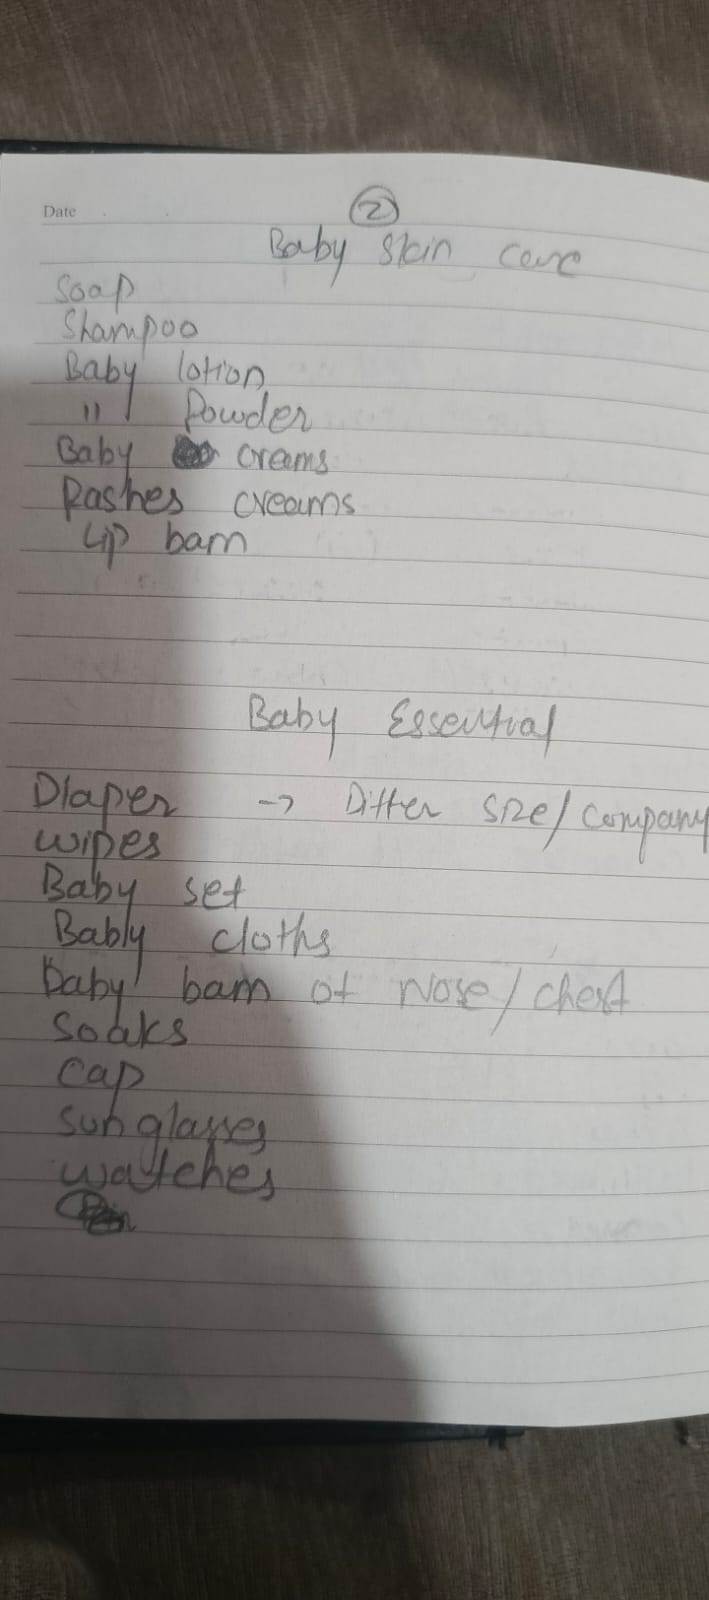 Date
2
Baby skin care
Soap
Shampoo
Baby lotion
" Powder
Baby creams
Rashes creams
Lip bam
Baby Essential
Diaper → Differ size/company
wipes
Baby set
Bably cloths
Baby bam of Nose/chest
Soaks
cap
sunglasses
watches